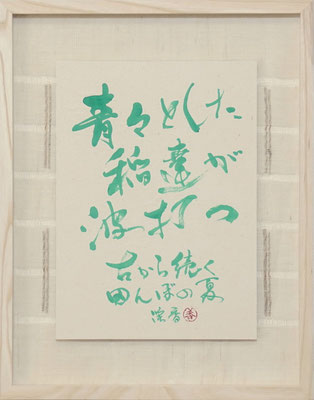 青々とした
稲達が
波打つ
古から続く
田んぼの夏